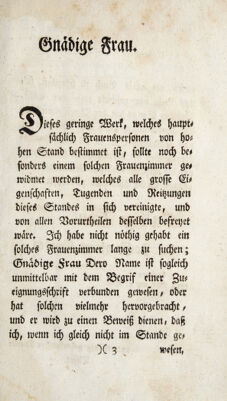 Gnädige Frau.
Dieses geringe Werk, welches haupt-
sächlich Frauenspersonen von ho-
hen Stand bestimmet ist, sollte noch be-
sonders einem solchen Frauenzimmer ge-
widmet werden, welches alle grosse Ei-
genschaften, Tugenden und Reitzungen
dieses Standes in sich vereinigte, und
von allen Vorurtheilen desselben befreyet
wäre. Ich habe nicht nöthig gehabt ein
solches Frauenzimmer lange zu suchen;
Gnädige Frau Dero Name ist sogleich
unmittelbar mit dem Begrif einer Zu-
eignungsschrift verbunden gewesen, oder
hat solchen vielmehr hervorgebracht,
und er wird zu einen Beweiß dienen, daß
ich, wenn ich gleich nicht im Stande ge-
)( 3 wesen,